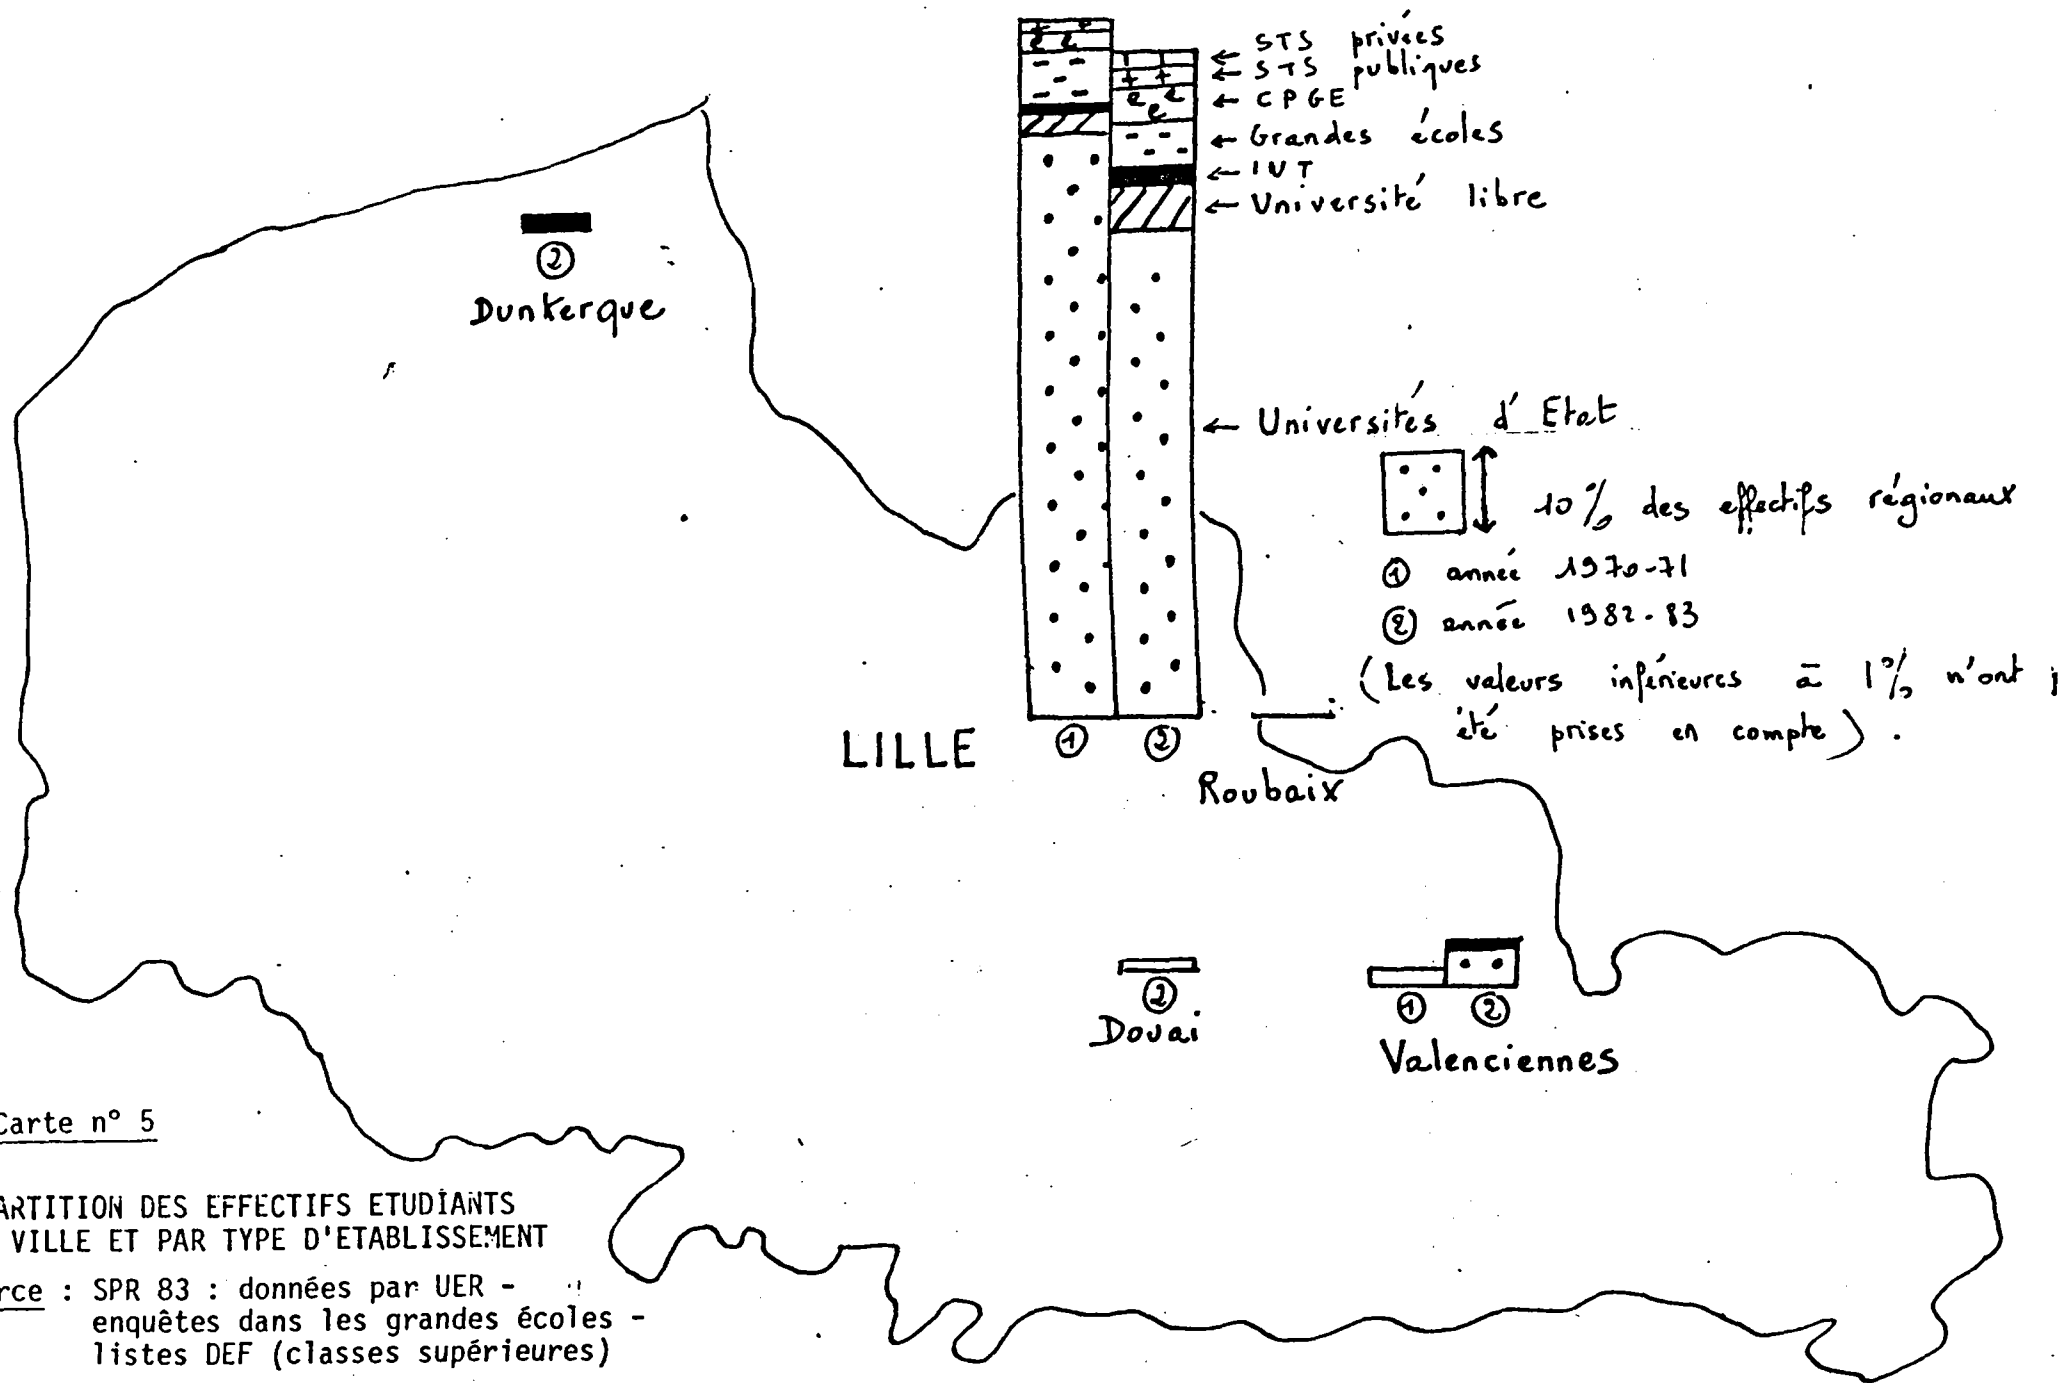 ← STS privées
← STS publiques
← CPGE
← Grandes écoles
← IUT
← Université libre
← Universités d'Etat
10% des effectifs régionaux
① année 1970-71
② année 1982-83
(Les valeurs inférieures à 1% n'ont
été prises en compte).
②
Dunkerque
LILLE
①
②
Roubaix
②
Douai
①
②
Valenciennes
Carte n° 5
ARTITION DES EFFECTIFS ETUDIANTS
VILLE ET PAR TYPE D'ETABLISSEMENT
rce : SPR 83 : données par UER -
enquêtes dans les grandes écoles -
listes DEF (classes supérieures)